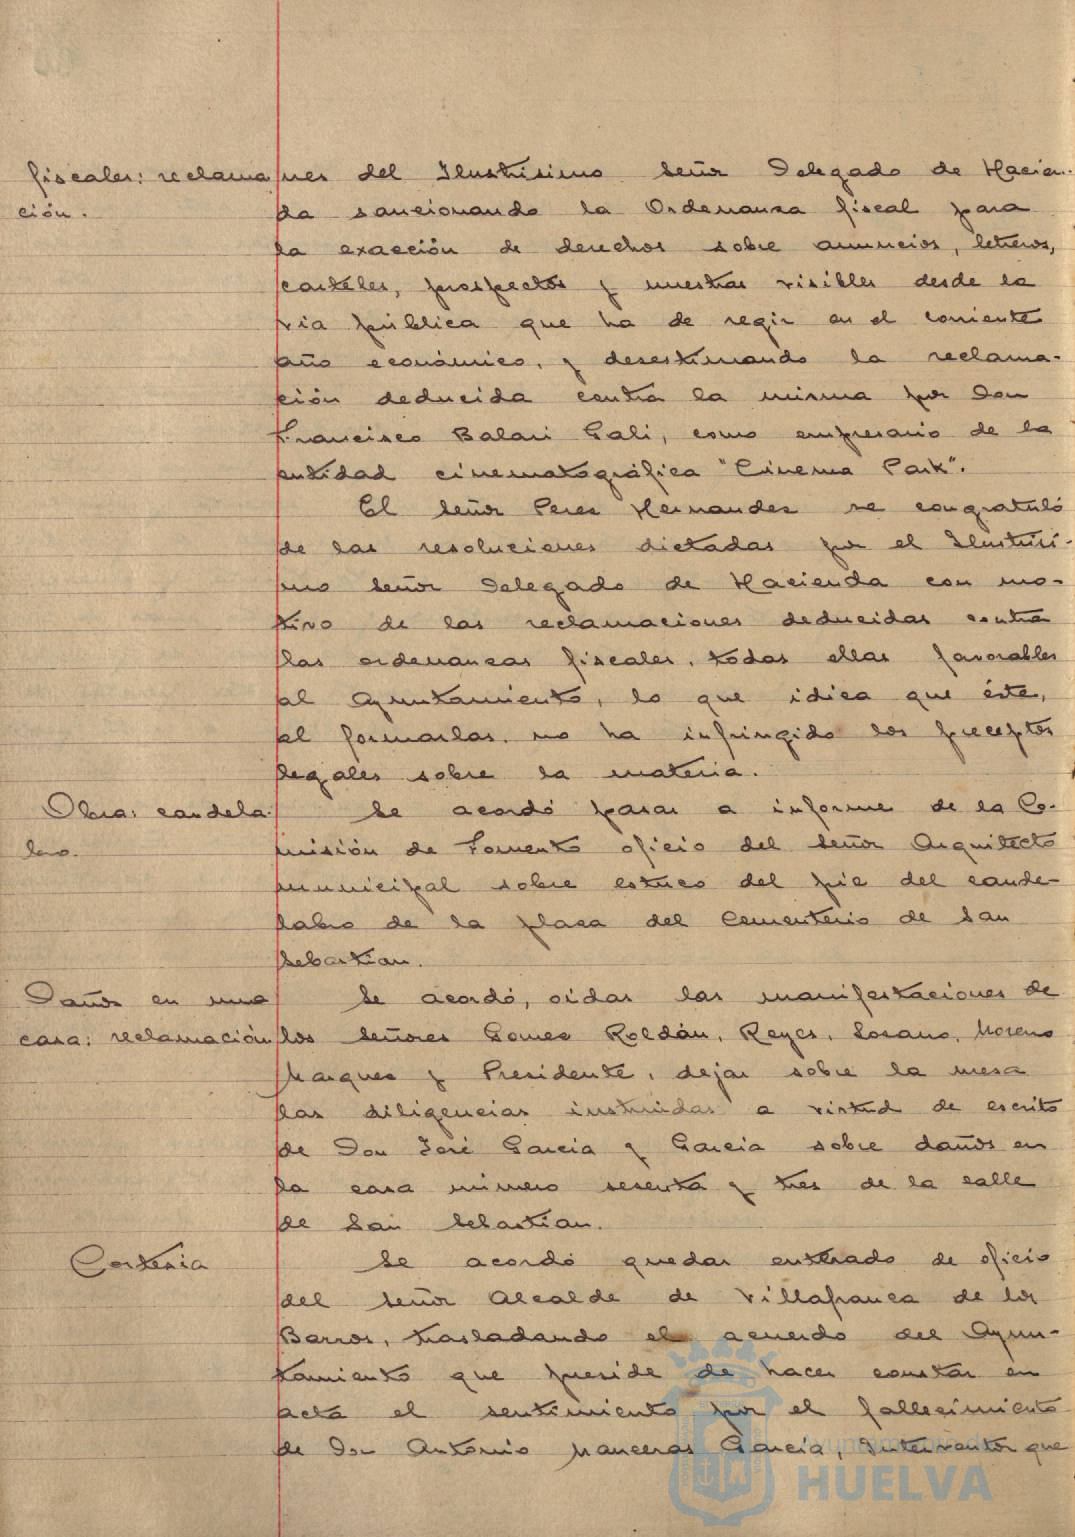 fiscales: reclama
ción.
nes del Ilustrísimo Señor Delegado de Hacien-
da sancionando la Ordenanza fiscal para
la exacción de derechos sobre anuncios, letreros,
carteles, prospectos y muestras visibles desde la
via pública que ha de regir en el corriente
año económico, y desestimando la reclama-
ción deducida contra la misma por Don
Francisco Balari Gali, como empresario de la
entidad cinematográfica "Cinema Park".
El Señor Perez Hernandez se congratuló
de las resoluciones dictadas por el Ilustrisi-
mo Señor Delegado de Hacienda con mo-
tivo de las reclamaciones deducidas contra
las ordenanzas fiscales, todas ellas favorables
al Ayuntamiento, lo que idica que éste,
al formarlas, no ha infringido los preceptos
legales sobre la materia.
Obra: candela-
bro.
Se acordó pasar a informe de la Co-
misión de Fomento oficio del Señor Arquitecto
municipal sobre estuco del pie del cande-
labro de la plaza del Cementerio de San
Sebastian.
Daños en una
casa: reclamación
Se acordó, oidas las manifestaciones de
los Señores Gomez Roldán, Reyes, Lozano, Moreno
Marquez y Presidente, dejar sobre la mesa
las diligencias instruidas a virtud de escrito
de Don José Garcia y Garcia sobre daños en
la casa número sesenta y tres de la calle
de San Sebastian.
Cortesia
Se acordó quedar enterado de oficio
del Señor Alcalde de Villafranca de los
Barros, trasladando el acuerdo del Ayun-
tamiento que preside de hacer constar en
acta el sentimiento por el fallecimiento
de Don Antonio Manceras Garcia, Interventor que
Ayuntamiento de
HUELVA